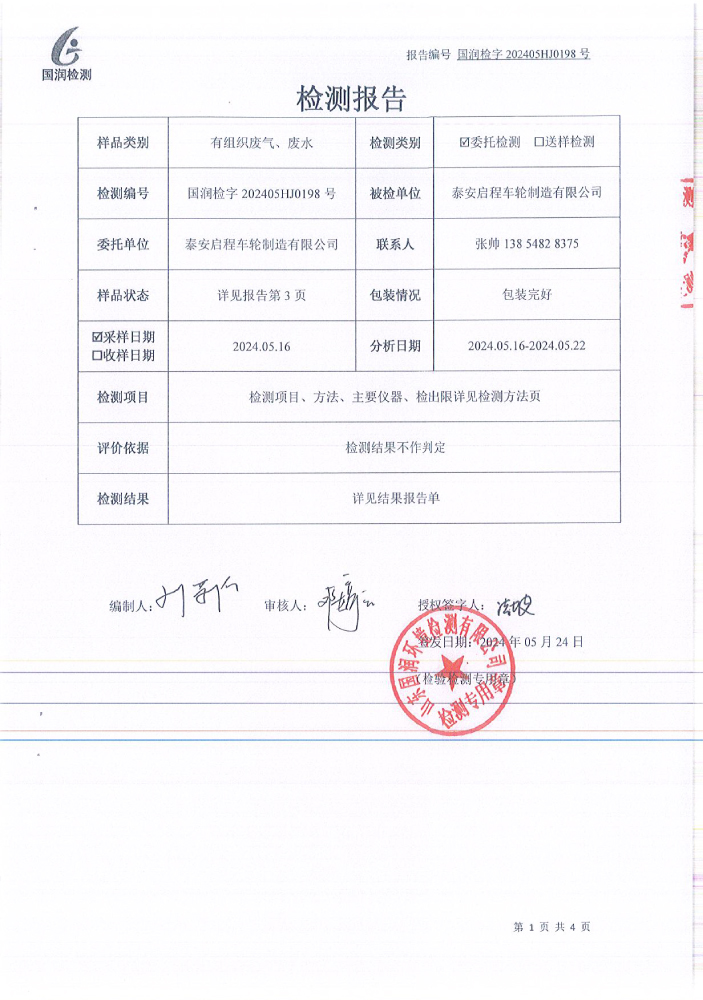 国润检测
报告编号 国润检字 202405HJ0198 号
检测报告
样品类别 有组织废气、废水 检测类别 ☑委托检测 ☐送样检测
检测编号 国润检字 202405HJ0198 号 被检单位 泰安启程车轮制造有限公司
委托单位 泰安启程车轮制造有限公司 联系人 张帅 138 5482 8375
样品状态 详见报告第 3 页 包装情况 包装完好
☑采样日期
☐收样日期 2024.05.16 分析日期 2024.05.16-2024.05.22
检测项目 检测项目、方法、主要仪器、检出限详见检测方法页
评价依据 检测结果不作判定
检测结果 详见结果报告单
编制人: 审核人: 授权签字人:
签发日期: 2024 年 05 月 24 日
(检验检测专用章)
山东国润环境检测有限公司
检测专用章
第 1 页 共 4 页